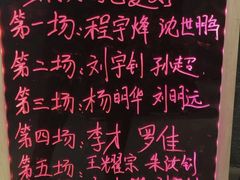 第一场:程宇烽 沈世鹏
第二场:刘宇钊 孙超
第三场:杨明华 刘明远
第四场:李才 罗佳
第五场:王耀宗 朱汝钊